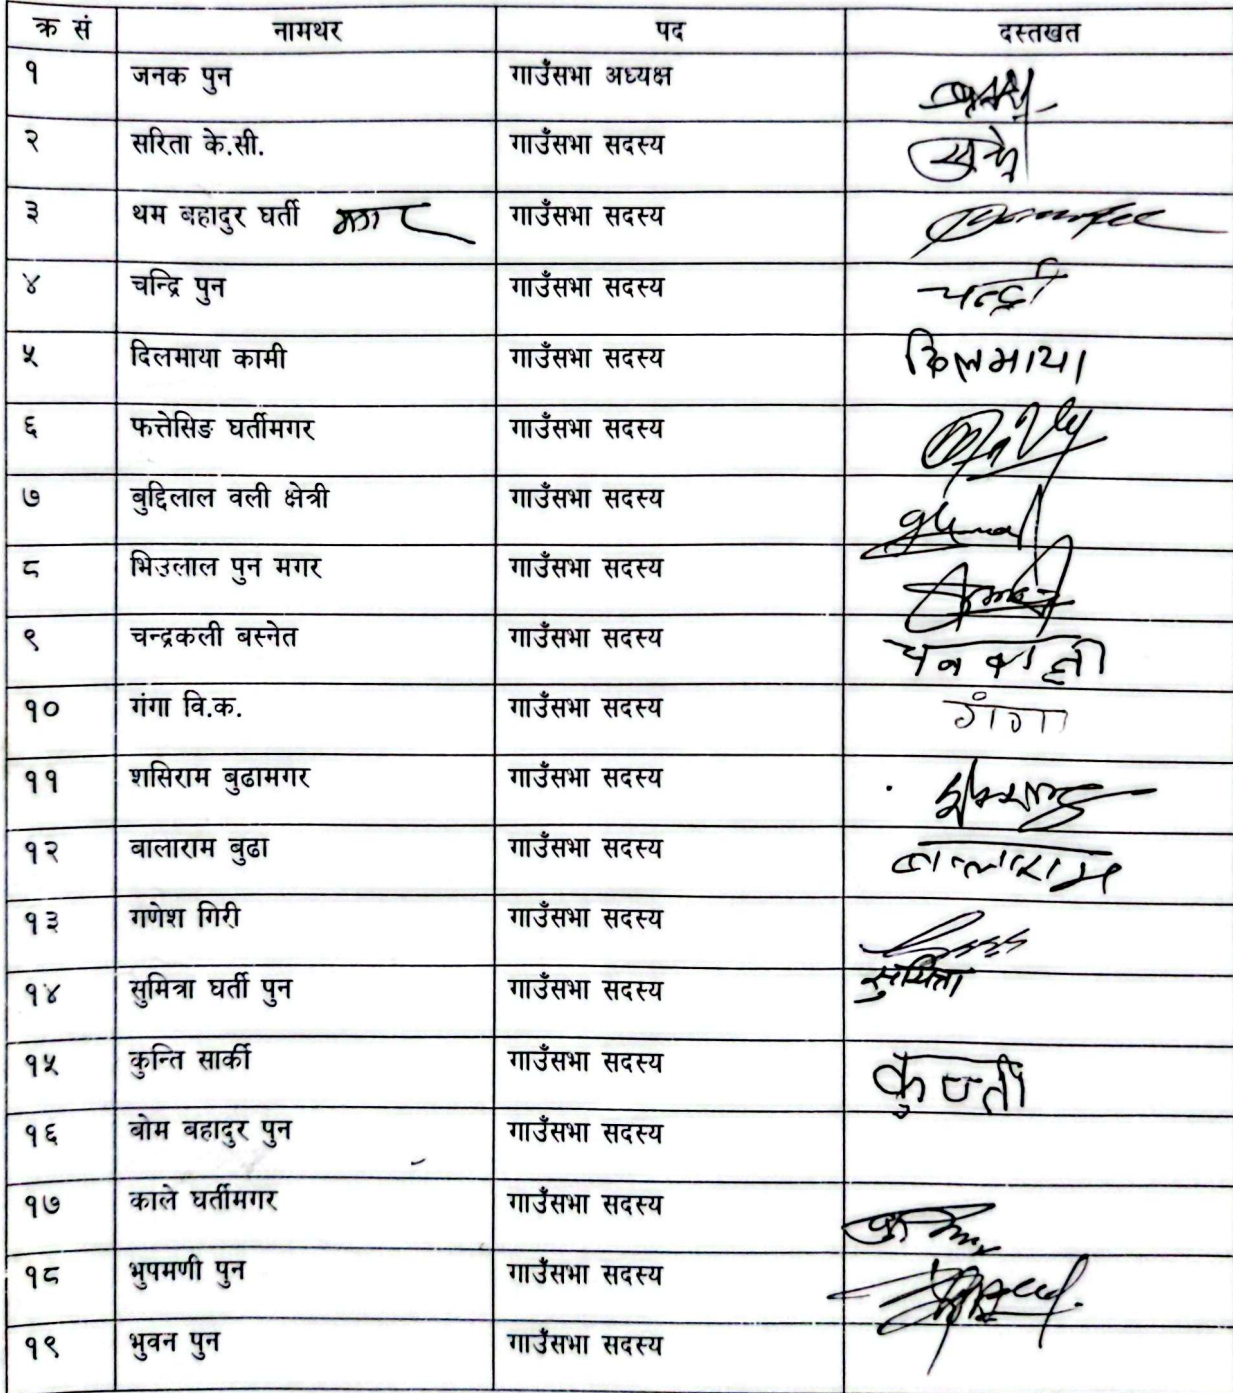 क्र सं नामथर पद दस्तखत
१ जनक पुन गाउँसभा अध्यक्ष
२ सरिता के.सी. गाउँसभा सदस्य
३ थम बहादुर घर्ती मगर गाउँसभा सदस्य
४ चन्द्रि पुन गाउँसभा सदस्य चन्द्री
५ दिलमाया कामी गाउँसभा सदस्य दिलमाया
६ फत्तेसिङ घर्तीमगर गाउँसभा सदस्य
७ बुद्दिलाल वली क्षेत्री गाउँसभा सदस्य
८ भिउलाल पुन मगर गाउँसभा सदस्य
९ चन्द्रकली बस्नेत गाउँसभा सदस्य
१० गंगा वि.क. गाउँसभा सदस्य गंगा
११ शसिराम बुढामगर गाउँसभा सदस्य
१२ वालाराम बुढा गाउँसभा सदस्य बालाराम
१३ गणेश गिरी गाउँसभा सदस्य
१४ सुमित्रा घर्ती पुन गाउँसभा सदस्य सुमित्रा
१५ कुन्ति सार्की गाउँसभा सदस्य कुण्ती
१६ बोम बहादुर पुन गाउँसभा सदस्य
१७ काले घर्तीमगर गाउँसभा सदस्य
१८ भुपमणी पुन गाउँसभा सदस्य
१९ भुवन पुन गाउँसभा सदस्य